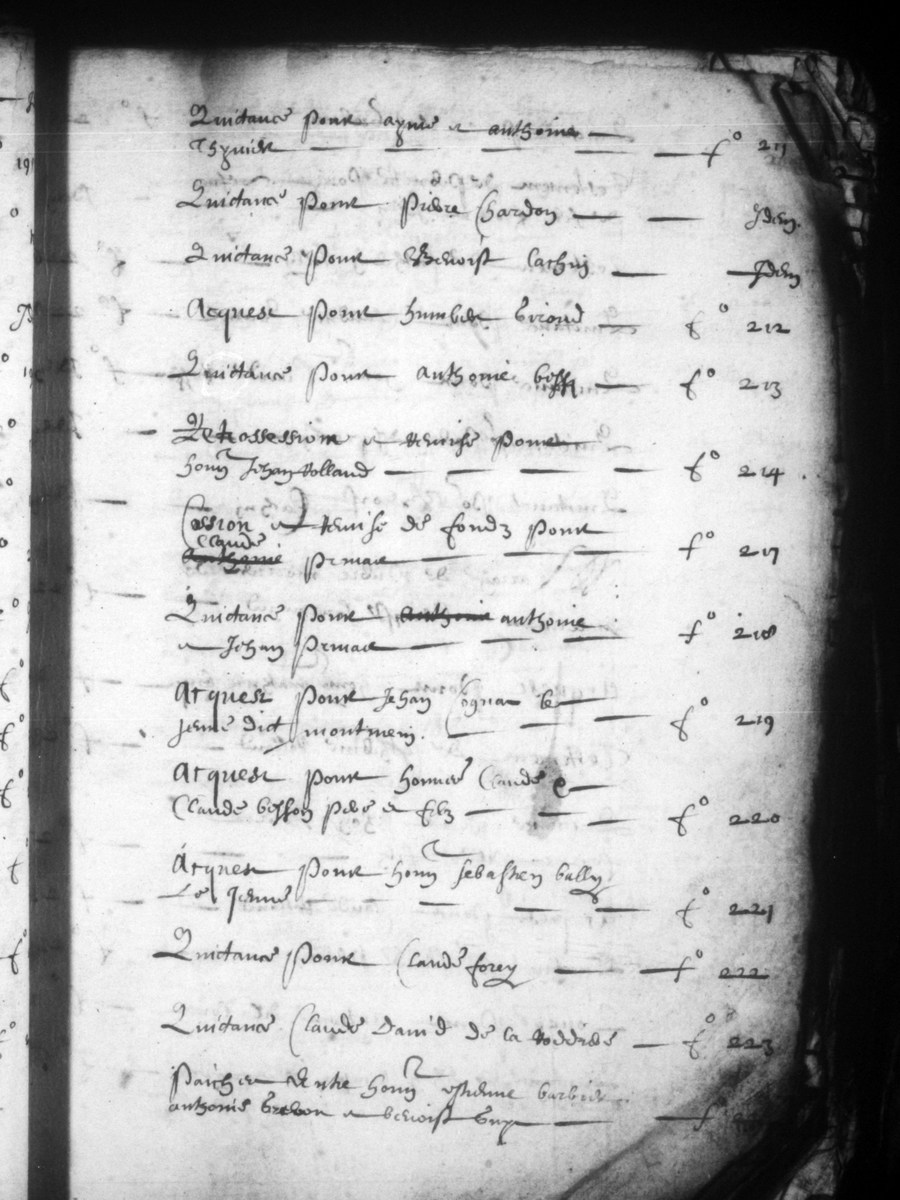 Quictance pour ayme et anthoine
Thyvier fo 211
Quictance pour Pierre Chardon Idem
Quictance pour Benoist Cachin Idem
Acquest pour humbert Girond fo 212
Quictance pour anthoine fo 213
Retrossession et remise pour
honn Jehan Rolland fo 214
Cession et remise de fondz pour
Claude
anthoine Prmat fo 217
Quictance pour anthoine anthoine
et Jehan Prmat fo 218
Acquest pour Jehan Cognat le
jeune dict montmein fo 219
Acquest pour honnes Claude e
Claude besson pere et filz fo 220
Acquest pour honn sebastien bally
Le Jeune fo 221
Quictance pour Claude forey fo 222
Quictance Claude David de la fo 223
Entre honn estienne barbier
anthoine et benoist Guy fo